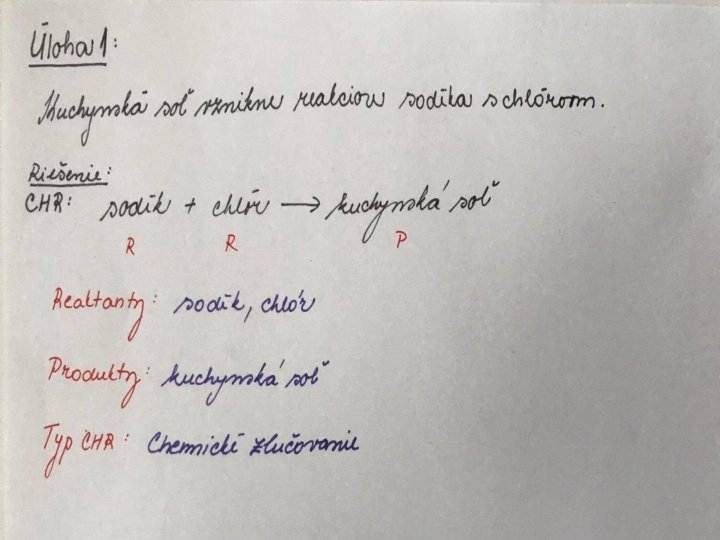 Úloha 1:
Kuchynská soľ vznikne reakciou sodíka s chlórom.
Riešenie:
CHR: sodík + chlór → kuchynská soľ
R R P
Reaktanty: sodík, chlór
Produkty: kuchynská soľ
Typ CHR: Chemické zlučovanie